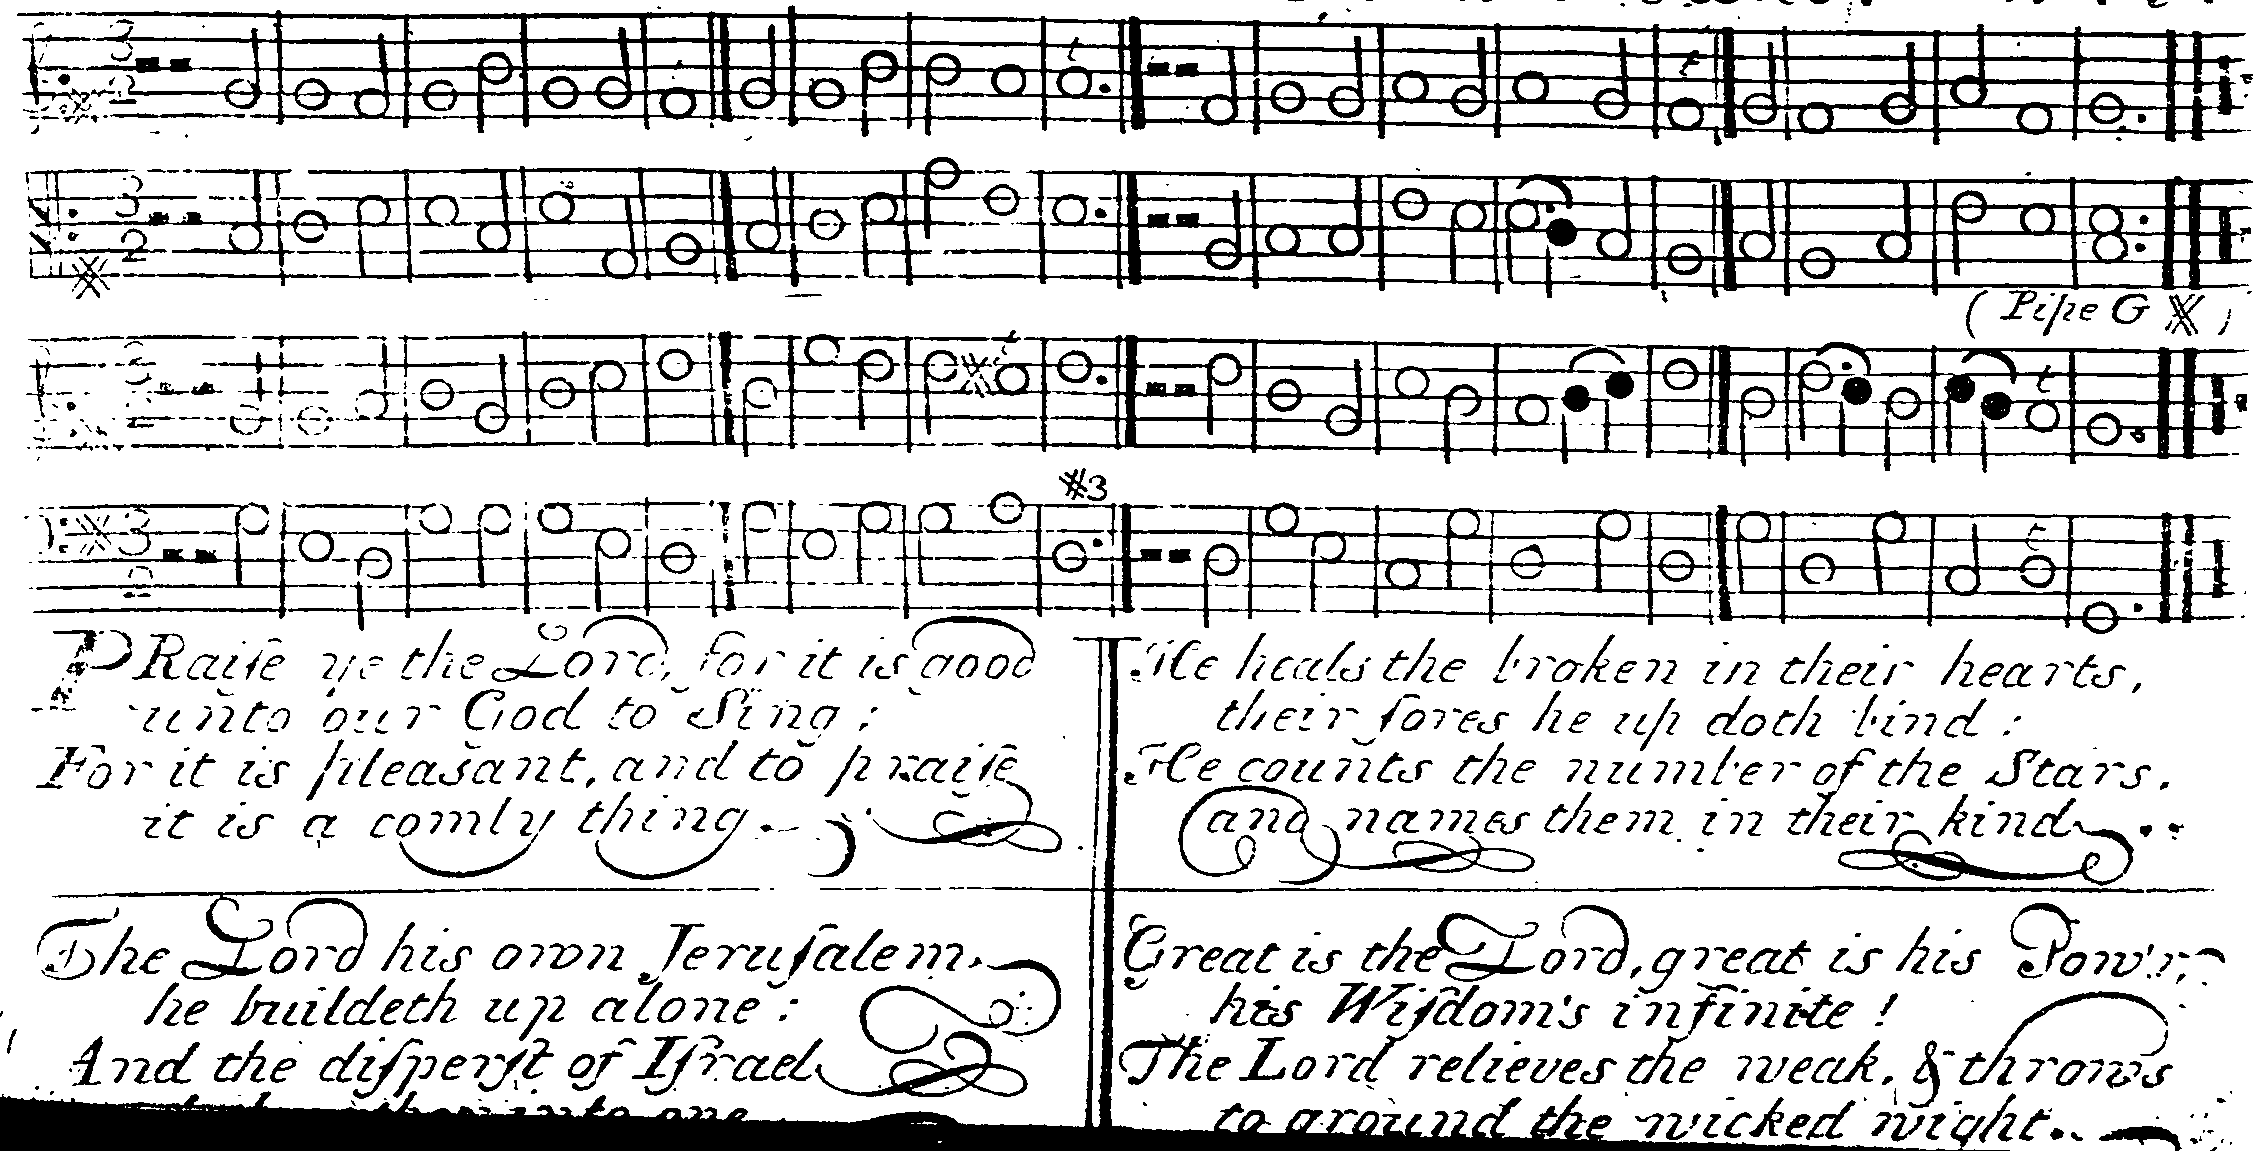 (Pipe G ※)
※3
PRaiſe ye the Lord, for it is good
unto our God to Sing:
For it is pleasant, and to praiſe
it is a comly thing.
He heals the broken in their hearts,
their ſores he up doth bind:
He counts the number of the Stars.
and names them in their kind
The Lord his own Jeruſalem,
he buildeth up alone:
And the diſperſt of Iſrael
into one
Great is the Lord, great is his Pow'r,
his Wiſdom's infinite!
The Lord relieves the weak, & throws
to ground the wicked wight.